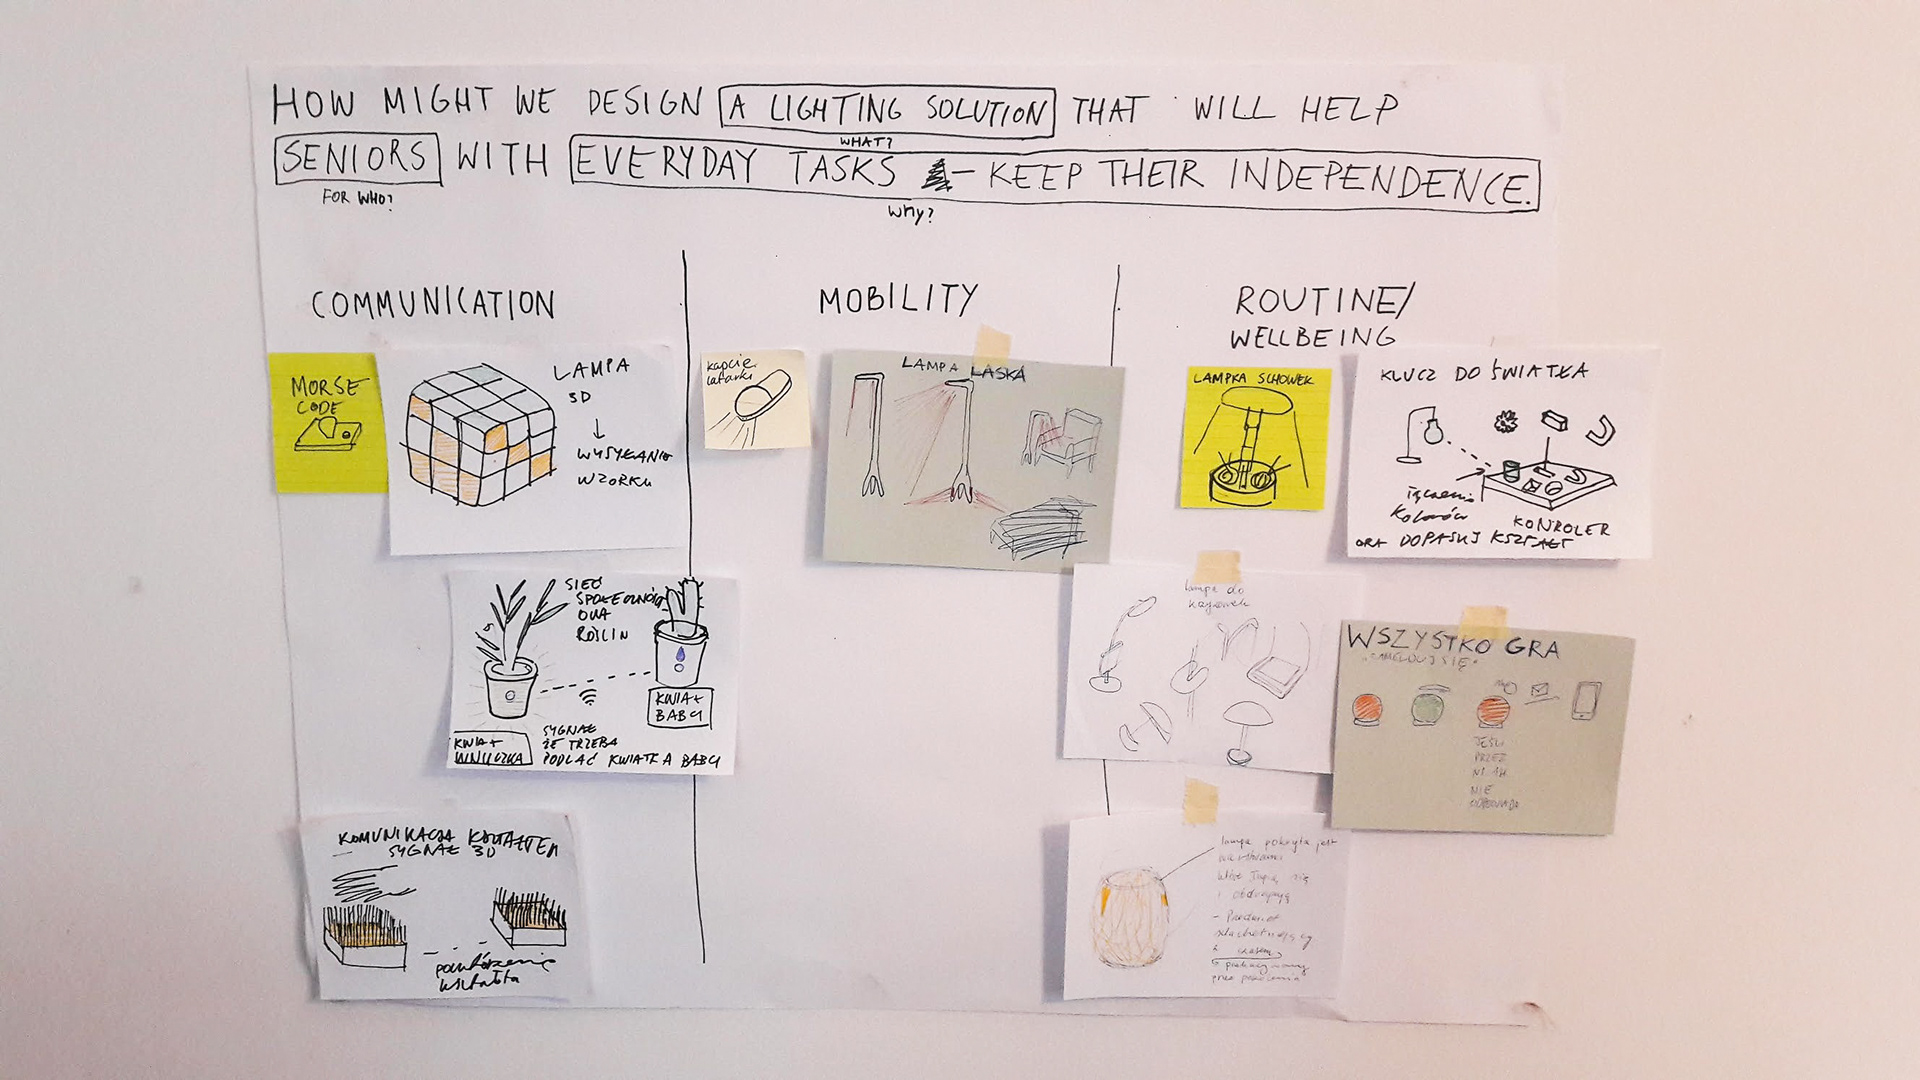 HOW MIGHT WE DESIGN A LIGHTING SOLUTION THAT WILL HELP
WHAT?
SENIORS WITH EVERYDAY TASKS - KEEP THEIR INDEPENDENCE.
FOR WHO?
Why?
COMMUNICATION
MOBILITY
ROUTINE/
WELLBEING
MORSE
CODE
LAMPA
3D
WYSYŁANIE
WZORKU
SIEĆ
SPOŁECZNOŚCIOWA
ROŚLIN
KWIAT
BABCI
KWIAT
WNUCZKA
SYGNAŁ
ŻE TRZEBA
PODLAĆ KWIATKA BABCI
KOMUNIKACJA KSZTAŁTEM
SYGNAŁ 3D
powtórzenie
kształtu
kapcie
latarki
LAMPA LASKA
LAMPKA SCHOWEK
KLUCZ DO ŚWIATŁA
łączenie
kolorów
KONROLER
ORA DOPASUJ KSZTAŁT
lampa do
WSZYSTKO GRA
"ZAMELDUJ SIĘ"
JEŚLI
PRZEZ
NIE
lampa pokryta jest
warstwami
które łupią się
i obdrapują
- Przedmiot
szlachetniejący
z czasem
przez pokolenia